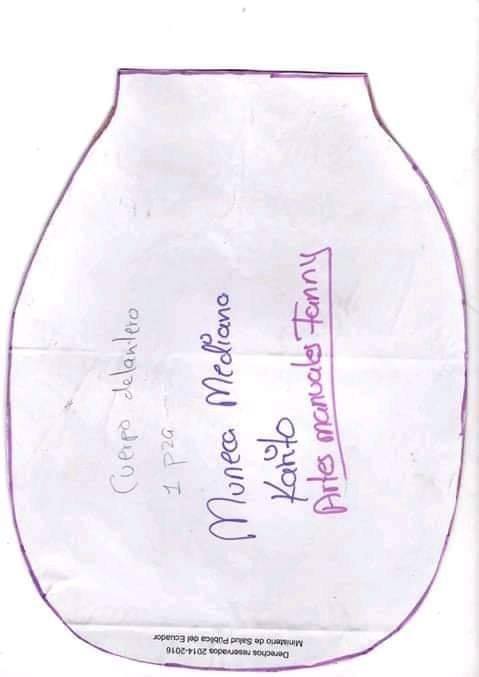 Cuerpo delantero
1 pza
Muneca Mediana
Karito
Artes manuales Fanny
Derechos reservados 2014-2016
Ministerio de Salud Pública del Ecuador